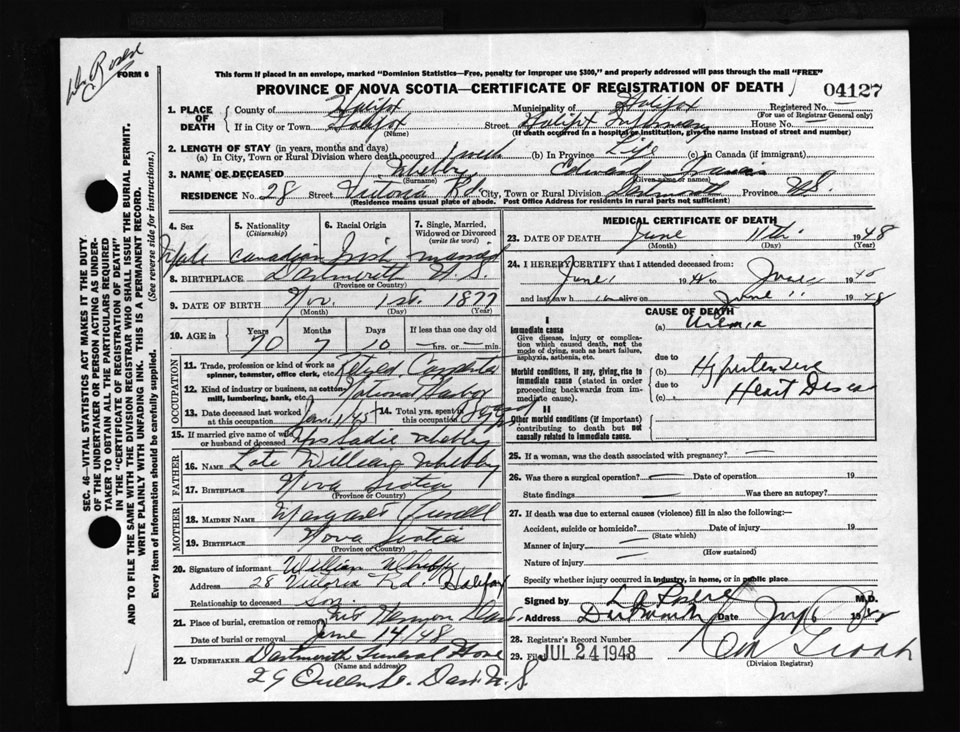 Dr Rosere
FORM 6
This form if placed in an envelope, marked "Dominion Statistics—Free, penalty for improper use $300," and properly addressed will pass through the mail "FREE"
PROVINCE OF NOVA SCOTIA—CERTIFICATE OF REGISTRATION OF DEATH
04127
1. PLACE OF DEATH
County of Halifax Municipality of Halifax Registered No.
(For use of Registrar General only)
If in City or Town Halifax Street Halifax Infirmary House No. —
(Name) (If death occurred in a hospital or institution, give the name instead of street and number)
2. LENGTH OF STAY (in years, months and days)
(a) In City, Town or Rural Division where death occurred 1 week (b) In Province Life (c) In Canada (if immigrant)
3. NAME OF DECEASED Whebby Edward Francis
(Surname) (Given name or names)
RESIDENCE No. 28 Street Victoria Rd. City, Town or Rural Division Dartmouth Province N.S.
(Residence means usual place of abode. Post Office Address for residents in rural parts not sufficient)
4. Sex 5. Nationality 6. Racial Origin 7. Single, Married, Widowed or Divorced
(Citizenship) (write the word)
Male Canadian Irish married
8. BIRTHPLACE Dartmouth N.S.
(Province or Country)
9. DATE OF BIRTH Nov. 1st. 1877
(Month) (Day) (Year)
10. AGE in Years Months Days If less than one day old
70 7 10 —hrs. or —min.
OCCUPATION
11. Trade, profession or kind of work as spinner, teamster, office clerk, etc. Retired Carpenter
12. Kind of industry or business, as cotton mill, lumbering, bank, etc. National Harbor
13. Date deceased last worked at this occupation Jan. 1/45 14. Total yrs. spent in this occupation
15. If married give name of wife or husband of deceased Mrs Sadie Whebby
FATHER
16. NAME Late William Whebby
17. BIRTHPLACE Nova Scotia
(Province or Country)
MOTHER
18. MAIDEN NAME Margaret
19. BIRTHPLACE Nova Scotia
(Province or Country)
20. Signature of informant William Whebby
Address 28 Victoria Rd. Halifax
Relationship to deceased son
21. Place of burial, cremation or removal Mt Hermon Dart.
Date of burial or removal June 14/48
22. UNDERTAKER Dartmouth Funeral Home
(Name and address)
29 Queen St. Dart. N.S.
MEDICAL CERTIFICATE OF DEATH
23. DATE OF DEATH June 11th 1948
(Month) (Day) (Year)
24. I HEREBY CERTIFY that I attended deceased from:
June 1 1948 to June 11 1948
and last saw him alive on June 11 1948
CAUSE OF DEATH
I
Immediate cause (a) Uremia
Give disease, injury or complication which caused death, not the mode of dying, such as heart failure, asphyxia, asthenia, etc.
due to
Morbid conditions, if any, giving rise to immediate cause (stated in order proceeding backwards from immediate cause).
(b) Hypertensive
due to Heart Disease
(c)
II
Other morbid conditions (if important) contributing to death but not causally related to immediate cause.
25. If a woman, was the death associated with pregnancy? —
26. Was there a surgical operation? — Date of operation — 19
State findings — Was there an autopsy?
27. If death was due to external causes (violence) fill in also the following:—
Accident, suicide or homicide? — Date of injury — 19
(State which)
Manner of injury —
(How sustained)
Nature of injury —
Specify whether injury occurred in industry, in home, or in public place
Signed by L A Rosere M.D.
Address Dartmouth Date
28. Registrar's Record Number
29. Filed JUL 24 1948
(Division Registrar)
SEC. 46—VITAL STATISTICS ACT MAKES IT THE DUTY
OF THE UNDERTAKER OR PERSON ACTING AS UNDER-
TAKER TO OBTAIN ALL THE PARTICULARS REQUIRED
IN THE "CERTIFICATE OF REGISTRATION OF DEATH"
AND TO FILE THE SAME WITH THE DIVISION REGISTRAR WHO SHALL ISSUE THE BURIAL PERMIT.
WRITE PLAINLY WITH UNFADING INK. THIS IS A PERMANENT RECORD.
Every item of information should be carefully supplied. (See reverse side for instructions.)